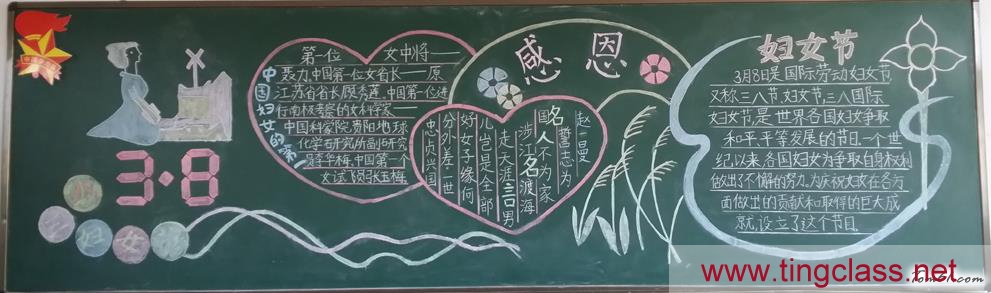 第一位 女中将——
聂力,中国第一位女省长——原
江苏省省长顾秀莲,中国第一位进
行南极考察的女科学家——
中国科学院贵阳地球
化学研究所副研究
员李华梅,中国第一个
女试飞员张玉梅.
中国妇女的第一
3·8
妇女
感恩
赵一曼
名誓志为
国人不为家
涉江名渡海
走天涯言男
儿岂是全部
好女子缘何
分外差一世
忠贞兴国
妇女节
3月8日是国际劳动妇女节
又称三八节,妇女节,三八国际
妇女节,是世界各国妇女争取
和平、平等发展的节日.一个世
纪以来,各国妇女为争取自身权利
做出了不懈的努力.为庆祝妇女在各方
面做出的贡献和取得的巨大成
就,设立了这个节日.
www.tingclass.net